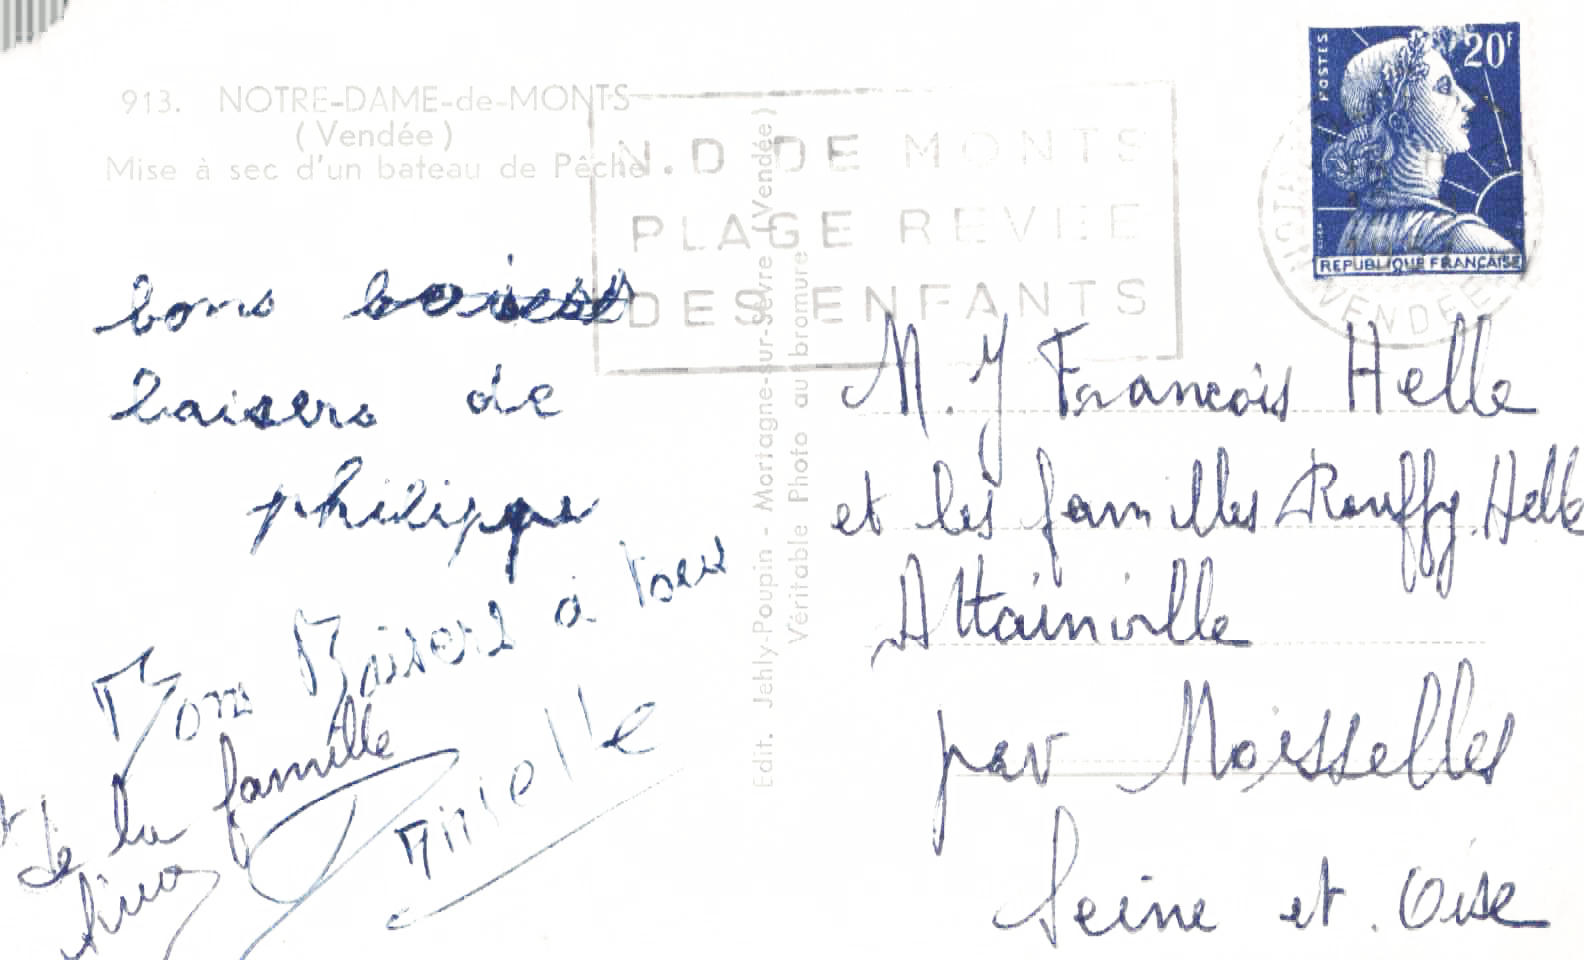 913. NOTRE-DAME-de-MONTS
(Vendée)
Mise à sec d'un bateau de Pêche
N.D DE MONTS
PLAGE REVEE
DES ENFANTS
POSTES
20F
REPUBLIQUE FRANÇAISE
VENDEE
bons
baisers de
philippe
Bons Baisers à tous
de la famille
Edit. Jehly-Poupin - Mortagne-sur-Sèvre (Vendée)
Véritable Photo au bromure
M. J François Helle
et les familles Rouffy. Helle
Attainville
par Moisselles
Seine et. Oise